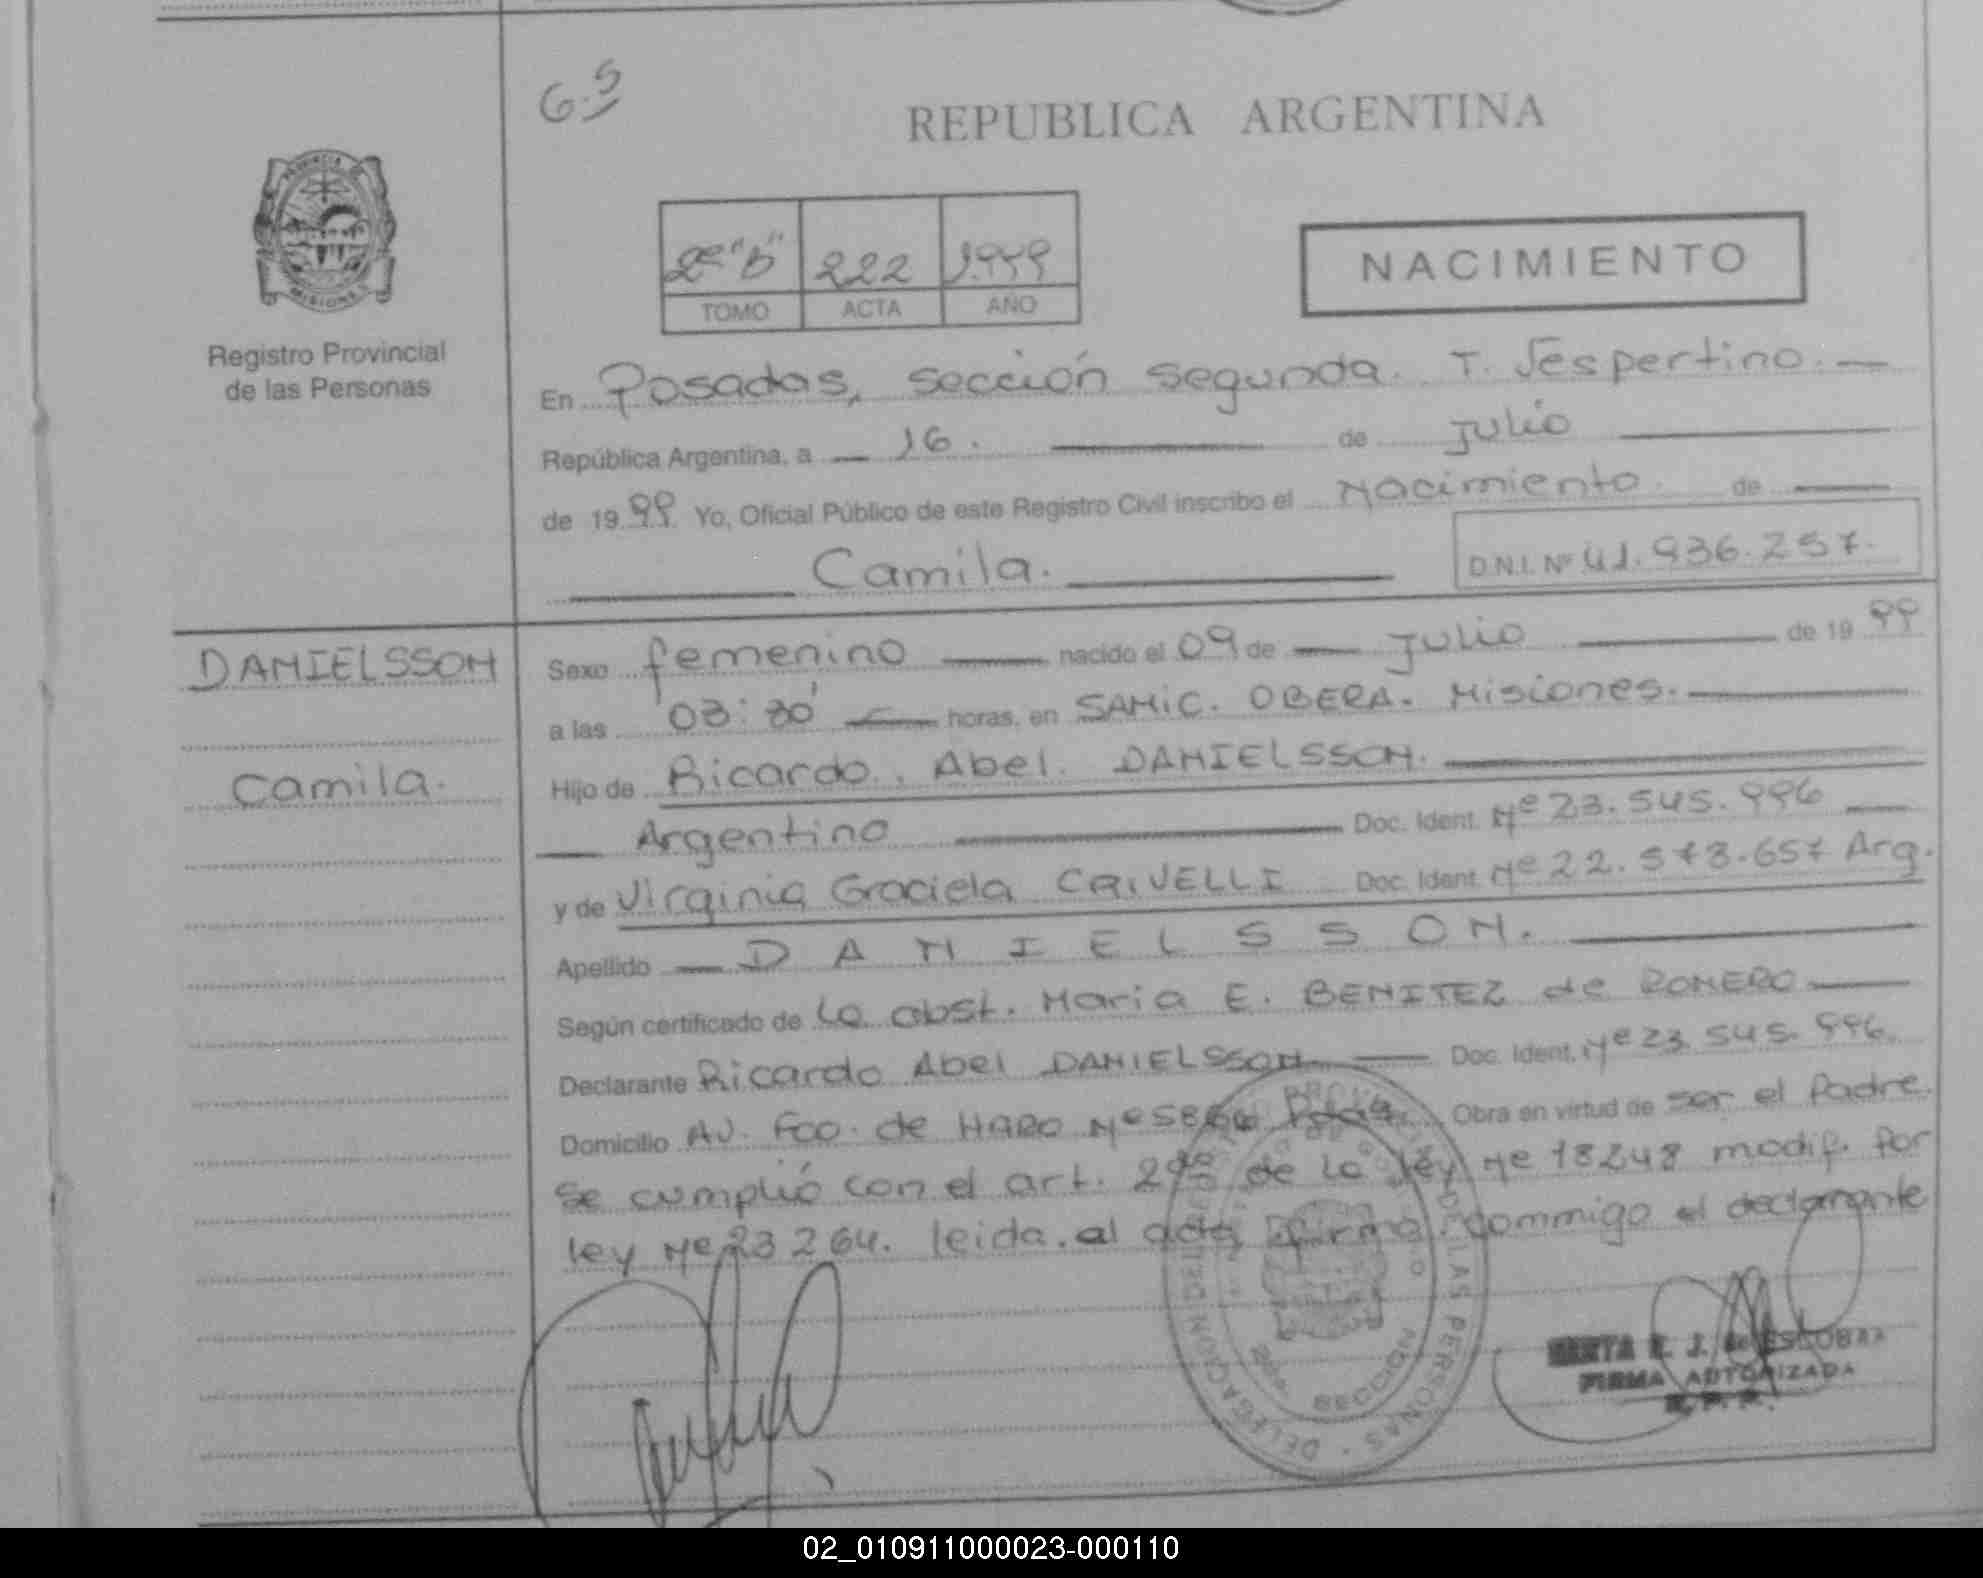 G.S
REPUBLICA ARGENTINA
2º "b" 222 1.999
TOMO ACTA AÑO
NACIMIENTO
PROVINCIA DE
MISIONES
Registro Provincial
de las Personas
En Posadas, sección segunda. T. Vespertino.
República Argentina, a 16. de Julio
de 1999 Yo, Oficial Público de este Registro Civil inscribo el Nacimiento. de
Camila.
D.N.I. Nº 41.936.257.
DANIELSSON
Camila.
Sexo femenino nacido el 09 de Julio de 1999
a las 03:30' horas, en SAMIC. OBERA. Misiones.
Hijo de Ricardo, Abel. DANIELSSON.
Argentino Doc. Ident. Nº 23.545.996
y de Virginia Graciela CRIVELLI Doc. Ident. Nº 22.573.657 Arg.
Apellido DANIELSSON.
Según certificado de La obst. Maria E. BENITEZ de ROMERO
Declarante Ricardo Abel DANIELSSON Doc. Ident. Nº 23.545.996.
Domicilio AV. Fco. de HARO Nº Obra en virtud de ser el Padre.
Se cumplió con el art. 2 de la ley Nº 18248 modif. por
ley Nº 23264. leida. al acta firma commigo el declarante
DELEGACION LAS PERSONAS
J. de ESCOBAR
FIRMA AUTORIZADA
R.P.P.
02_010911000023-000110